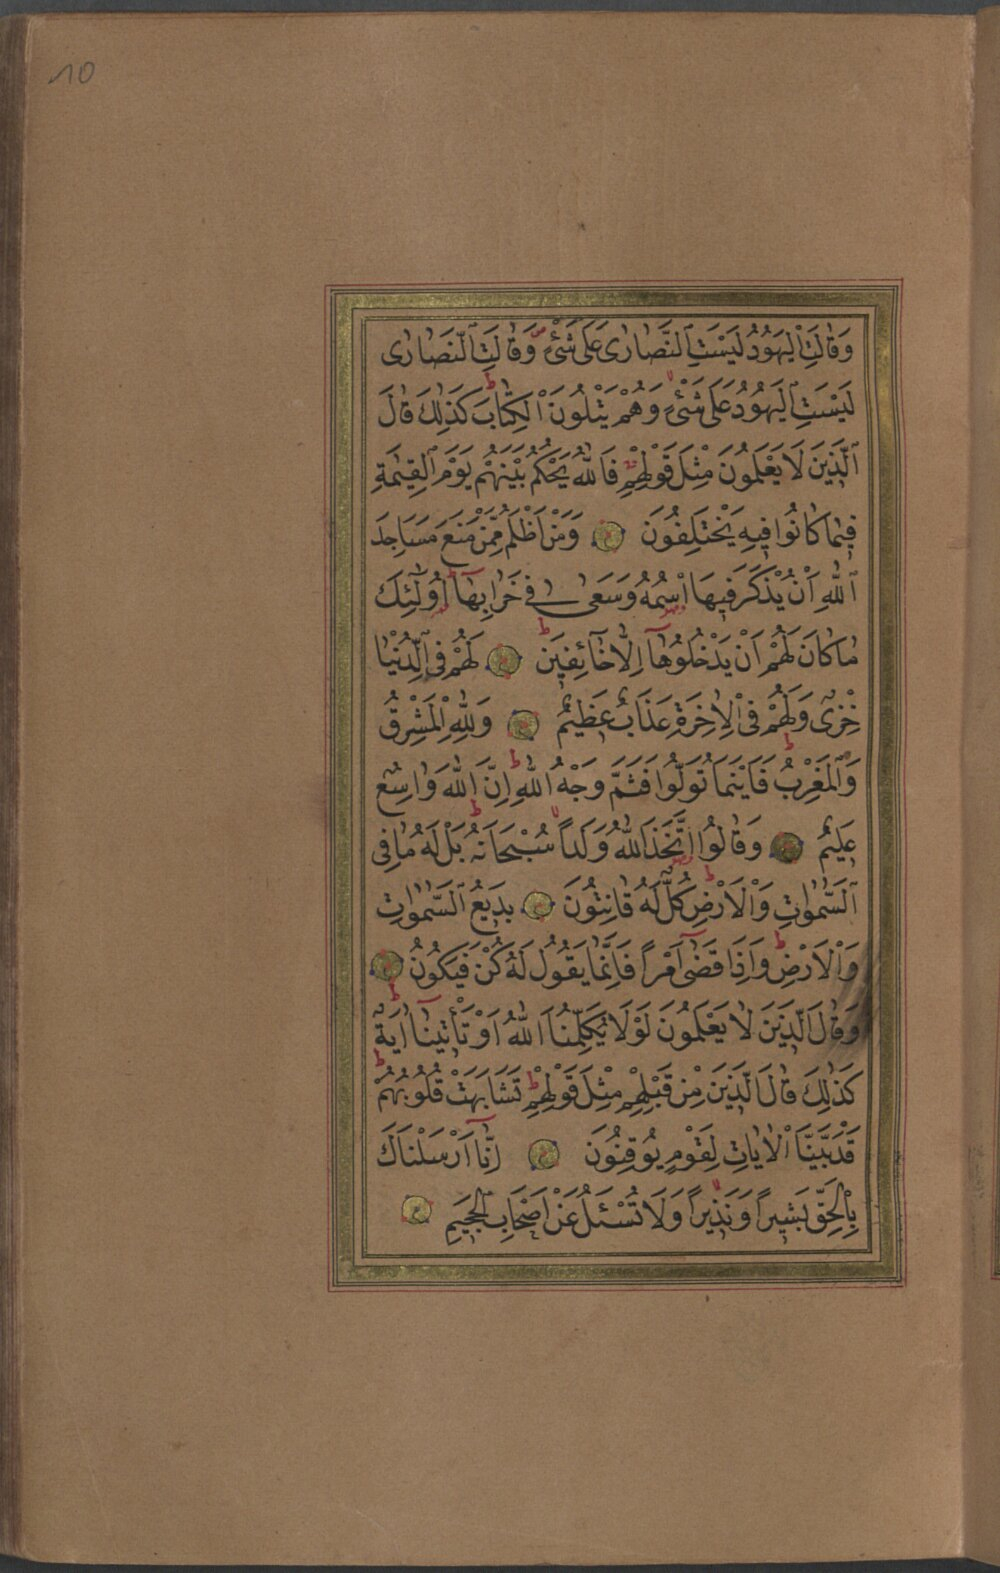 10
وَقَالَتِ الْيَهُودُ لَيْسَتِ النَّصَارٰى عَلٰى شَیْءٍ وَقَالَتِ النَّصَارٰى
لَيْسَتِ الْيَهُودُ عَلٰى شَیْءٍ وَهُمْ يَتْلُونَ الْكِتَابَ كَذٰلِكَ قَالَ
الَّذِينَ لَا يَعْلَمُونَ مِثْلَ قَوْلِهِمْ فَاللّٰهُ يَحْكُمُ بَيْنَهُمْ يَوْمَ الْقِيٰمَةِ
فِيمَا كَانُوا فِيهِ يَخْتَلِفُونَ وَمَنْ اَظْلَمُ مِمَّنْ مَنَعَ مَسَاجِدَ
اللّٰهِ اَنْ يُذْكَرَ فِيهَا اسْمُهُ وَسَعٰى فِى خَرَابِهَا اُولٰٓئِكَ
مَا كَانَ لَهُمْ اَنْ يَدْخُلُوهَا اِلَّا خَآئِفِينَ لَهُمْ فِى الدُّنْيَا
خِزْىٌ وَلَهُمْ فِى الْاٰخِرَةِ عَذَابٌ عَظِيمٌ وَلِلّٰهِ الْمَشْرِقُ
وَالْمَغْرِبُ فَاَيْنَمَا تُوَلُّوا فَثَمَّ وَجْهُ اللّٰهِ اِنَّ اللّٰهَ وَاسِعٌ
عَلِيمٌ وَقَالُوا اتَّخَذَ اللّٰهُ وَلَدًا سُبْحَانَهُ بَلْ لَهُ مَا فِى
السَّمٰوَاتِ وَالْاَرْضِ كُلٌّ لَهُ قَانِتُونَ بَدِيعُ السَّمٰوَاتِ
وَالْاَرْضِ وَاِذَا قَضٰٓى اَمْرًا فَاِنَّمَا يَقُولُ لَهُ كُنْ فَيَكُونُ
وَقَالَ الَّذِينَ لَا يَعْلَمُونَ لَوْلَا يُكَلِّمُنَا اللّٰهُ اَوْ تَأْتِينَآ اٰيَةٌ
كَذٰلِكَ قَالَ الَّذِينَ مِنْ قَبْلِهِمْ مِثْلَ قَوْلِهِمْ تَشَابَهَتْ قُلُوبُهُمْ
قَدْ بَيَّنَّا الْاٰيَاتِ لِقَوْمٍ يُوقِنُونَ اِنَّآ اَرْسَلْنَاكَ
بِالْحَقِّ بَشِيرًا وَنَذِيرًا وَلَا تُسْئَلُ عَنْ اَصْحَابِ الْجَحِيمِ